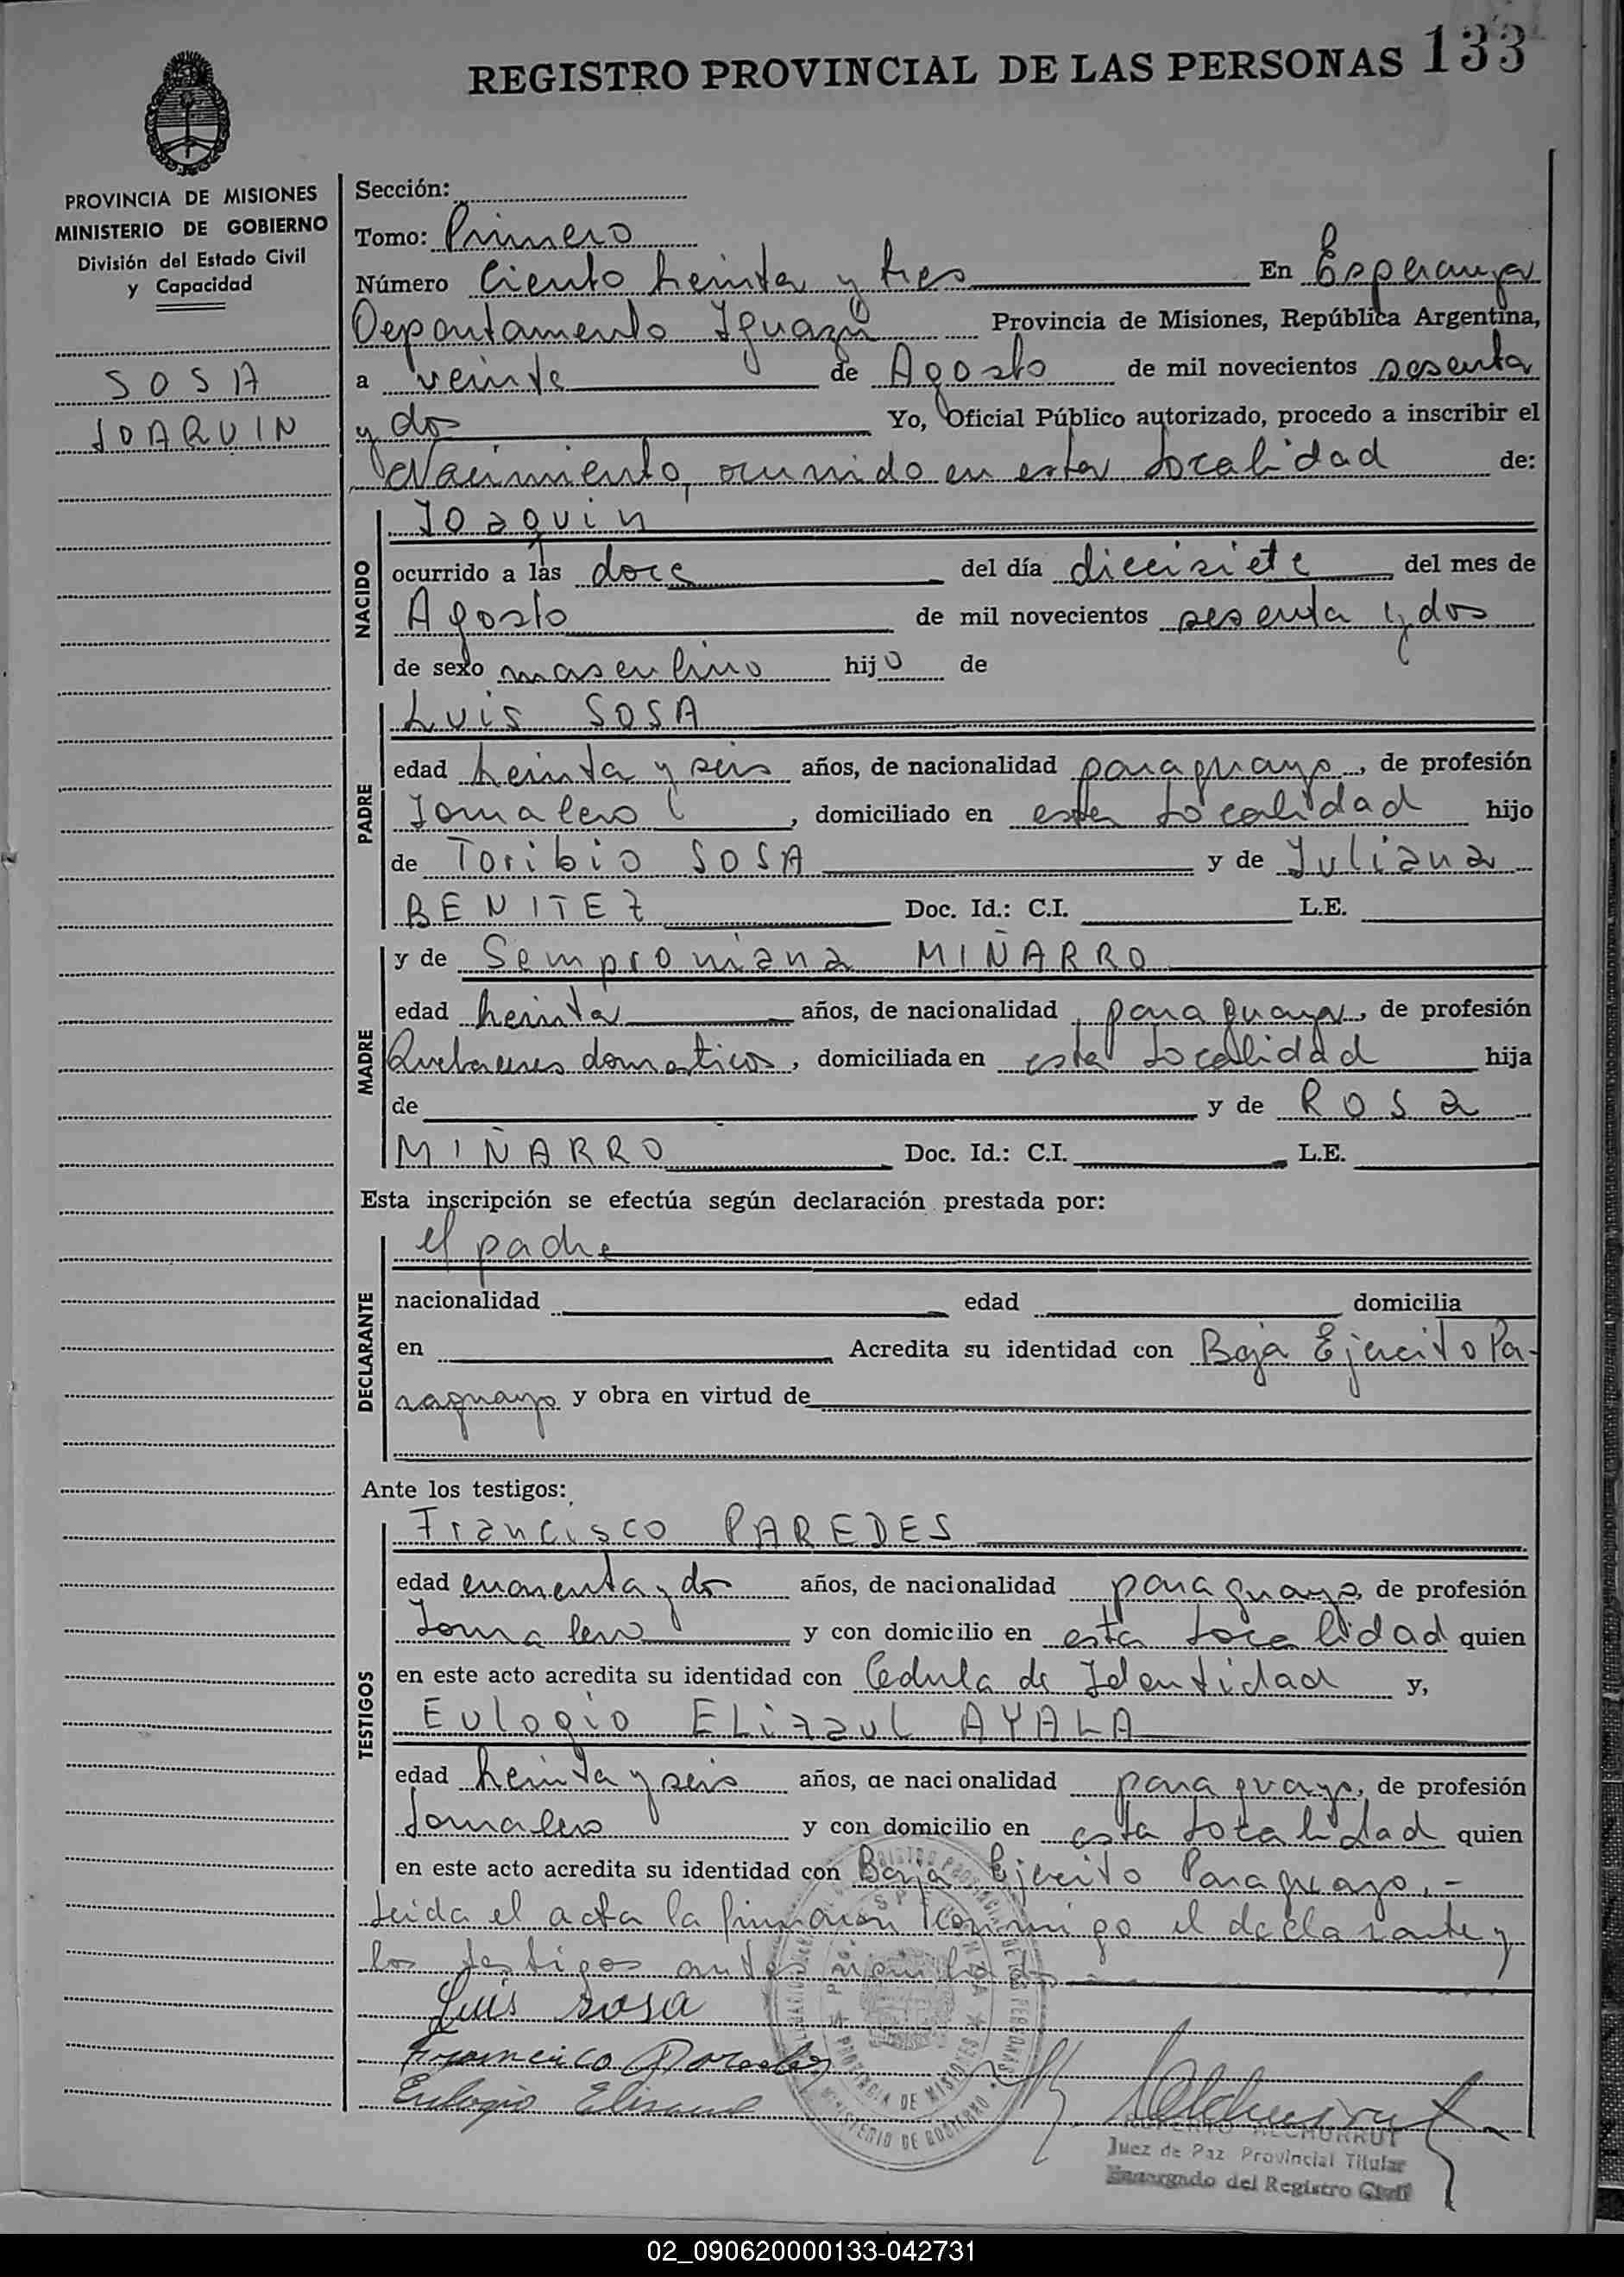 REGISTRO PROVINCIAL DE LAS PERSONAS 133
PROVINCIA DE MISIONES
MINISTERIO DE GOBIERNO
División del Estado Civil
y Capacidad
SOSA
JOAQUIN
Sección:
Tomo: Primero
Número Ciento treinta y tres En Esperanza
Departamento Iguazú Provincia de Misiones, República Argentina,
a veinte de Agosto de mil novecientos sesenta
y dos Yo, Oficial Público autorizado, procedo a inscribir el
Nacimiento, ocurrido en esta localidad de:
NACIDO
Joaquin
ocurrido a las doce del día diecisiete del mes de
Agosto de mil novecientos sesenta y dos
de sexo masculino hijo de
PADRE
Luis SOSA
edad treinta y seis años, de nacionalidad paraguayo, de profesión
Jornalero, domiciliado en esta localidad hijo
de Toribio SOSA y de Juliana
BENITEZ Doc. Id.: C.I. L.E.
MADRE
y de Semproniana MIÑARRO
edad treinta años, de nacionalidad paraguaya, de profesión
Quehaceres domesticos, domiciliada en esta localidad hija
de y de Rosa
MIÑARRO Doc. Id.: C.I. L.E.
Esta inscripción se efectúa según declaración prestada por:
DECLARANTE
el padre
nacionalidad edad domicilia
en Acredita su identidad con Baja Ejercito Pa-
raguayo y obra en virtud de
Ante los testigos:
TESTIGOS
Francisco PAREDES
edad cuarenta y dos años, de nacionalidad paraguayo, de profesión
Jornalero y con domicilio en esta localidad quien
en este acto acredita su identidad con Cedula de Identidad y,
Eulogio Elizaul AYALA
edad treinta y seis años, de nacionalidad paraguayo, de profesión
Jornalero y con domicilio en esta localidad quien
en este acto acredita su identidad con Baja Ejercito Paraguayo.-
Leida el acta la firmaron conmigo el declarante y
los testigos antes nombrados
Luis Sosa
Francisco Paredes
Eulogio
PROVINCIA DE MISIONES
MINISTERIO DE GOBIERNO
Juez de Paz Provincial Titular
Encargado del Registro Civil
02_090620000133-042731